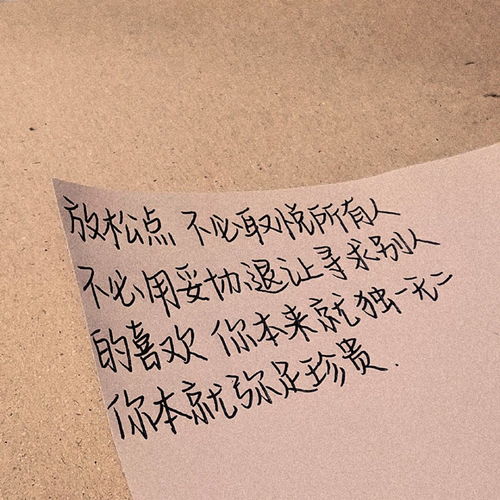 放松点 不必取悦所有人
不必用妥协、退让寻求别人
的喜欢 你本来就独一无二
你本就弥足珍贵.